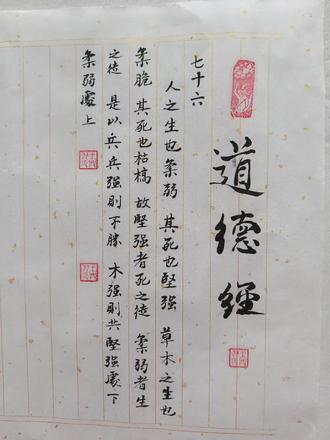 道德经
七十六
人之生也柔弱 其死也堅强 草木之生也
柔脆 其死也枯槁 故堅强者死之徒 柔弱者生
之徒 是以兵 兵强則不勝 木强則共 堅强處下
柔弱處上